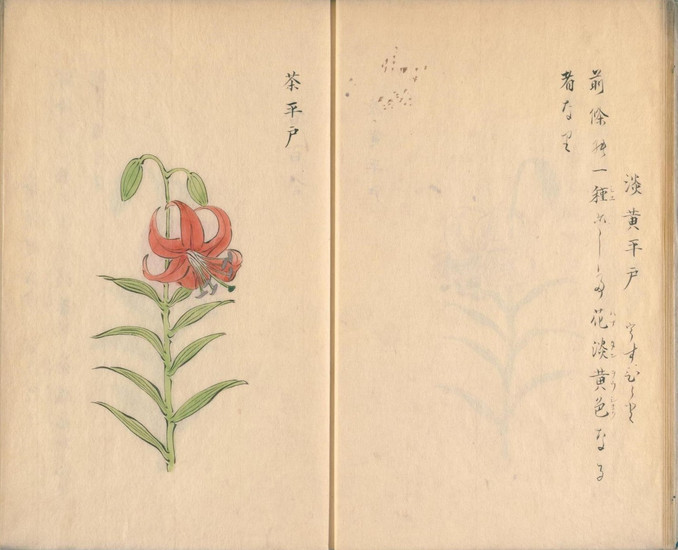 淡黄平戸 うすきひらど
前條の一種にして花淡黄色なる
者なり
茶平戸